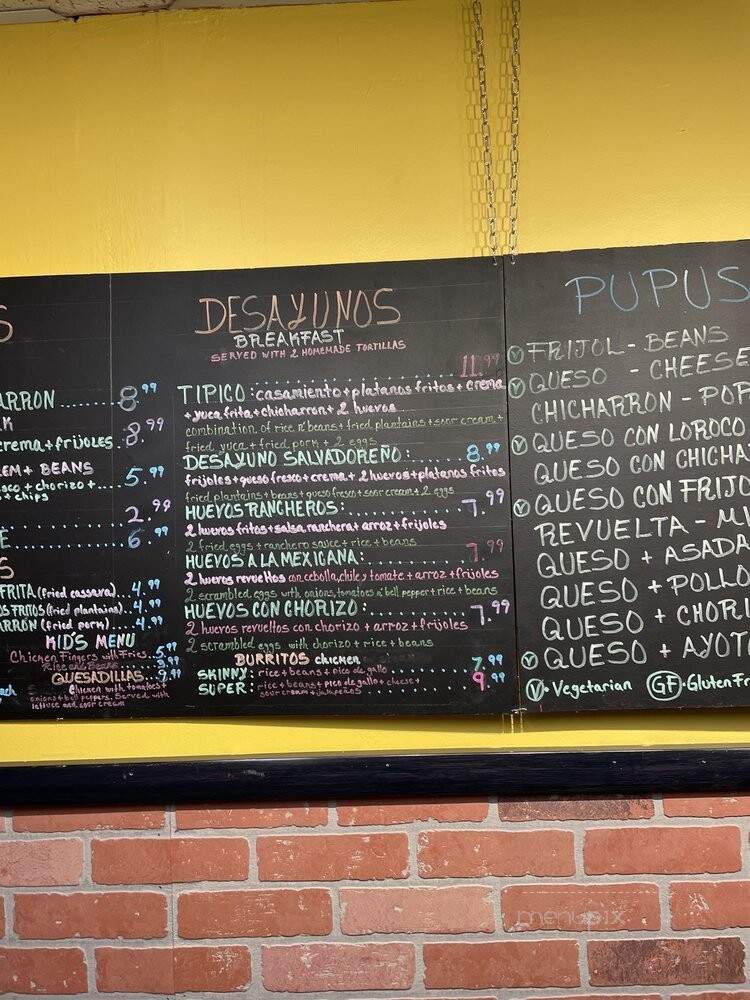 S
ARRON ...... 8.99
K
crema + frijoles. 8.99
EM + BEANS
oco + chorizo + ... 5.99
+ chips
2.99
E 6.99
S
FRITA (fried cassava)... 4.99
OS FRITOS (fried plantains)... 4.99
ARRON (fried pork)... 4.99
KID'S MENU
Chicken Fingers with Fries 5.99
Rice and Beans
QUESADILLAS... 9.99
ach Chicken with tomatoes +
onions + bell peppers. Served with
lettuce and sour cream
DESAYUNOS
BREAKFAST
SERVED WITH 2 HOMEMADE TORTILLAS
11.99
TIPICO: casamiento + platanos fritos + crema
+ yuca frita + chicharron + 2 huevos
combination of rice n' beans + fried plantains + sour cream +
fried yuca + fried pork + 2 eggs
DESAYUNO SALVADOREÑO: 8.99
frijoles + queso fresco + crema + 2 huevos + platanos fritos
fried plantains + beans + queso fresco + sour cream + 2 eggs
HUEVOS RANCHEROS: 7.99
2 huevos fritos + salsa ranchera + arroz + frijoles
2 fried eggs + ranchero sauce + rice + beans
HUEVOS A LA MEXICANA: 7.99
2 huevos revueltos con cebolla, chile y tomate + arroz + frijoles
2 scrambled eggs with onions, tomatoes n' bell pepper + rice + beans
HUEVOS CON CHORIZO: 7.99
2 huevos revueltos con chorizo + arroz + frijoles
2 scrambled eggs with chorizo + rice + beans
BURRITOS chicken
SKINNY: rice + beans + pico de gallo 7.99
SUPER: rice + beans + pico de gallo + cheese + 9.99
sour cream + jalapeños
PUPUS
V FRIJOL - BEANS
V QUESO - CHEESE
CHICHARRON - POR
V QUESO CON LOROCO
QUESO CON CHICHA
V QUESO CON FRIJO
REVUELTA - MI
QUESO + ASADA
QUESO + POLLO
QUESO + CHORI
V QUESO + AYOT
V • Vegetarian GF • Gluten Fr
menupix